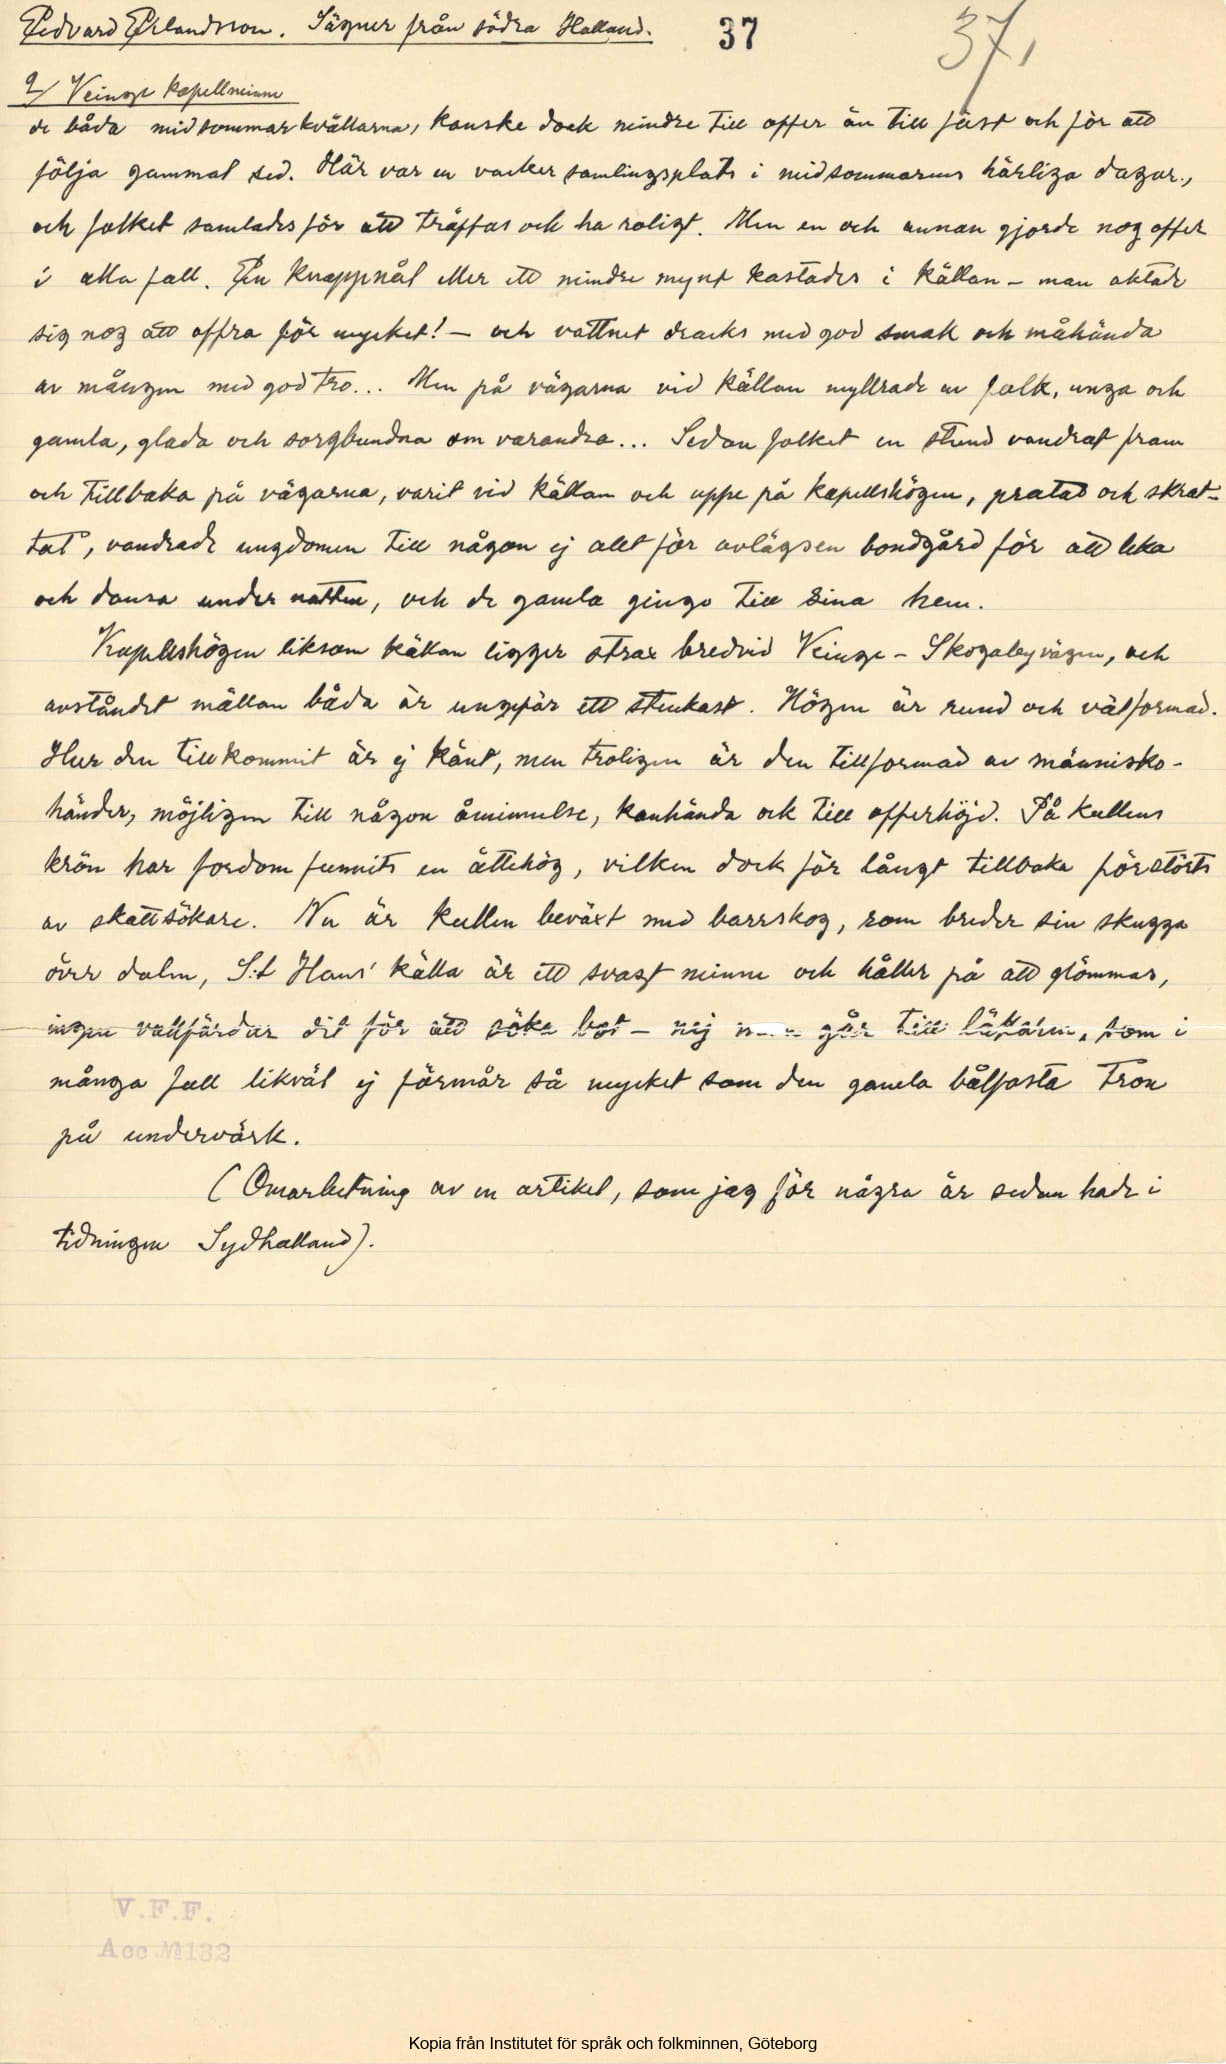 Edvard Erlandsson. Sägner från södra Halland. 37 37,
9/ Veinge kapellminne
de båda midsommarkvällarna, kanske dock mindre till offer än till fäst och för att
följa gammal sed. Här var en vacker samlingsplats i midsommarens härliga dagar.,
och folket samlades för att träffas och ha roligt. Men en och annan gjorde nog offer
i alla fall. En knappnål eller ett mindre mynt kastades i källan – man aktade
sig nog att offra för mycket! – och vattnet dracks med god smak och måhända
av mången med god tro... Men på vägarna vid källan myllrade av folk, unga och
gamla, glada och sorgbundna om varandra... Sedan folket en stund vandrat fram
och tillbaka på vägarna, varit vid källan och uppe på kapellshögen, pratat och skrat-
tat, vandrade ungdomen till någon ej allt för avlägsen bondgård för att leka
och dansa under natten, och de gamla gingo till sina hem.
Kapellshögen liksom källan ligger strax bredvid Veinge – Skogabyvägen, och
avståndet mällan båda är ungefär ett stenkast. Högen är rund och välformad.
Hur den tillkommit är ej känt, men troligen är den tillformad av människo-
händer, möjligen till någon åminnelse, kanhända ock till offerhöjd. På kullens
krön har fordom funnits en ättehög, vilken dock för långt tillbaka förstörts
av skattsökare. Nu är kullen beväxt med barrskog, som breder sin skugga
över dalen, S:t Hans' källa är ett svagt minne och håller på att glömmas,
ingen vallfärdar dit för att söka bot – nej man går till läkaren, som i
många fall likväl ej förmår så mycket som den gamla bålfasta tron
på undervärk.
(Omarbetning av en artikel, som jag för några år sedan hade i
tidningen Sydhalland).
V.F.F.
Acc. № 132
Kopia från Institutet för språk och folkminnen, Göteborg